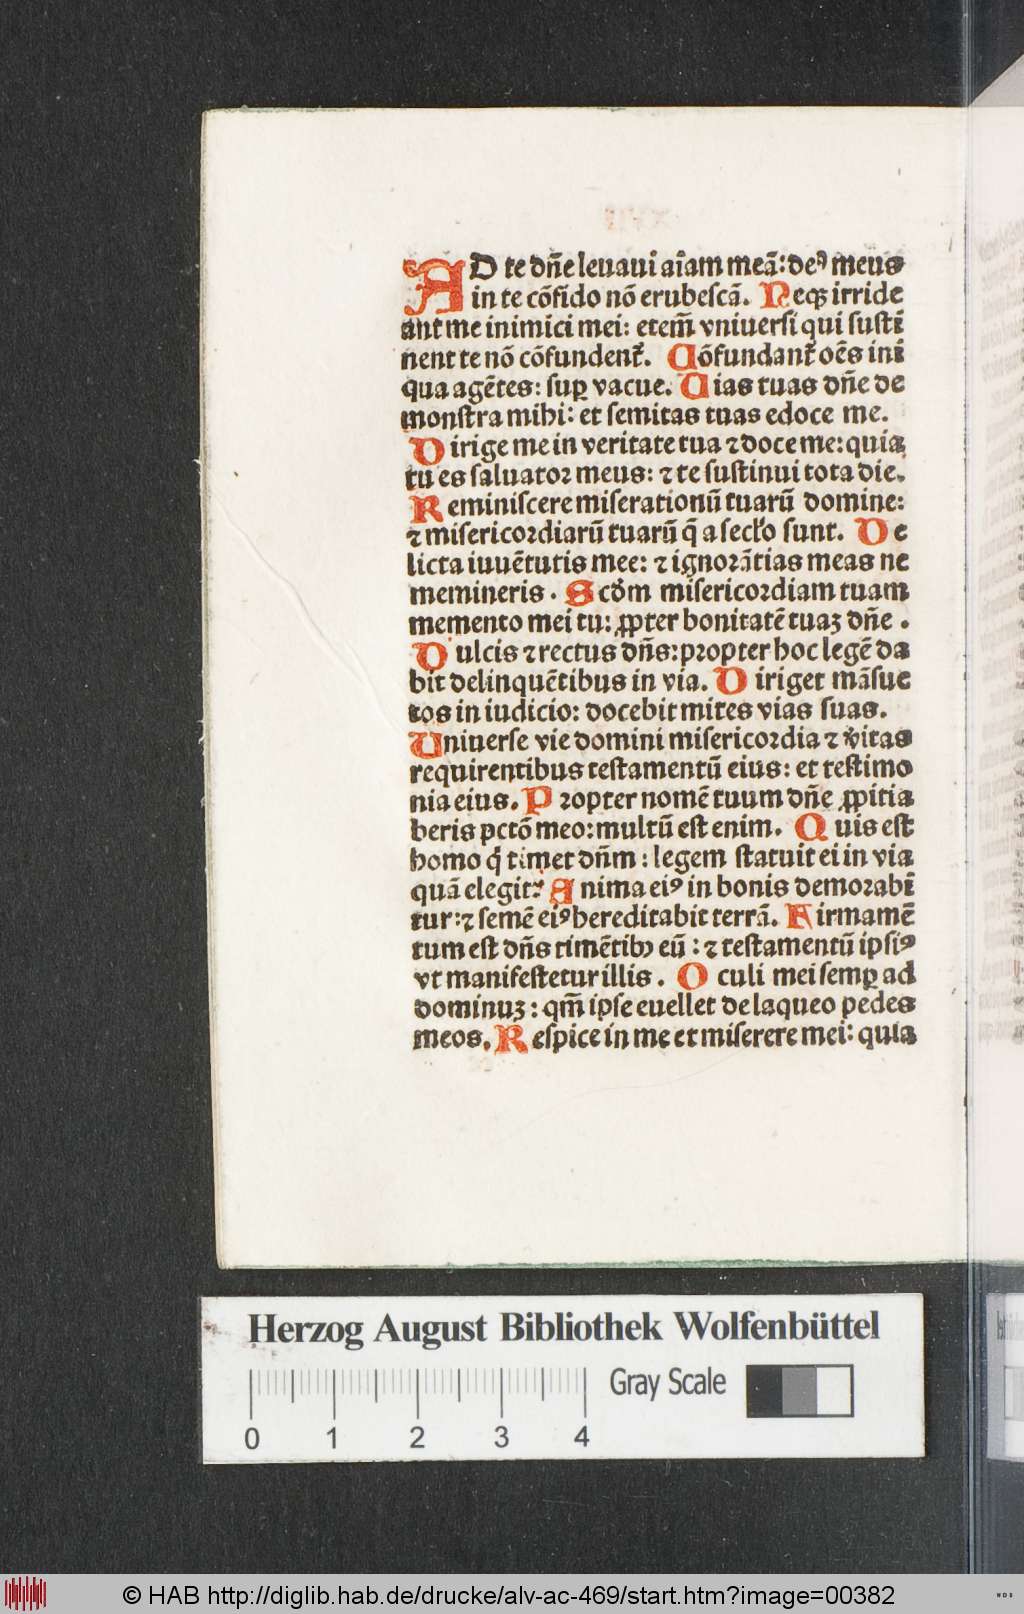 AD te dn̄e leuaui aīam meā: deꝰ meus
in te cōfido nō erubeſcā. Neqꝫ irride
ant me inimici mei: etem̄ vniuerſi qui ſuſti
nent te nō cōfundent᷑. Cōfundant᷑ oēs ini
qua agētes: ſuꝑ vacue. Uias tuas dn̄e de
monſtra mihi: et ſemitas tuas edoce me.
Dirige me in veritate tua ⁊ doce me: quia
tu es ſaluatoꝛ meus: ⁊ te ſuſtinui tota die.
Reminiſcere miſerationū tuarū domine:
⁊ miſericoꝛdiarū tuarū q̄ a ſecl̓o ſunt. De
licta iuuētutis mee: ⁊ ignorātias meas ne
memineris. Scd̓m miſericoꝛdiam tuam
memento mei tu: ꝓpter bonitatē tuaꝫ dn̄e.
Dulcis ⁊ rectus dn̄s: pꝛopter hoc legē da
bit delinquētibus in via. Diriget māſue
tos in iudicio: docebit mites vias ſuas.
Uniuerſe vie domini miſericoꝛdia ⁊ v̓itas
requirentibus teſtamentū eius: et teſtimo
nia eius. Pꝛopter nomē tuum dn̄e ꝓpitia
beris pctō meo: multū eſt enim. Quis eſt
homo q̇ timet dn̄m: legem ſtatuit ei in via
quā elegit? Anima eiꝰ in bonis demoꝛabi
tur: ⁊ ſemē eiꝰ hereditabit terrā. Firmamē
tum eſt dn̄s timētibꝫ eū: ⁊ teſtamentū ipſiꝰ
vt manifeſtetur illis. Oculi mei ſemꝑ ad
dominuꝫ: qm̄ ipſe euellet de laqueo pedes
meos. Reſpice in me et miſerere mei: quia
Herzog August Bibliothek Wolfenbüttel
Gray Scale
0 1 2 3 4
© HAB http://diglib.hab.de/drucke/alv-ac-469/start.htm?image=00382